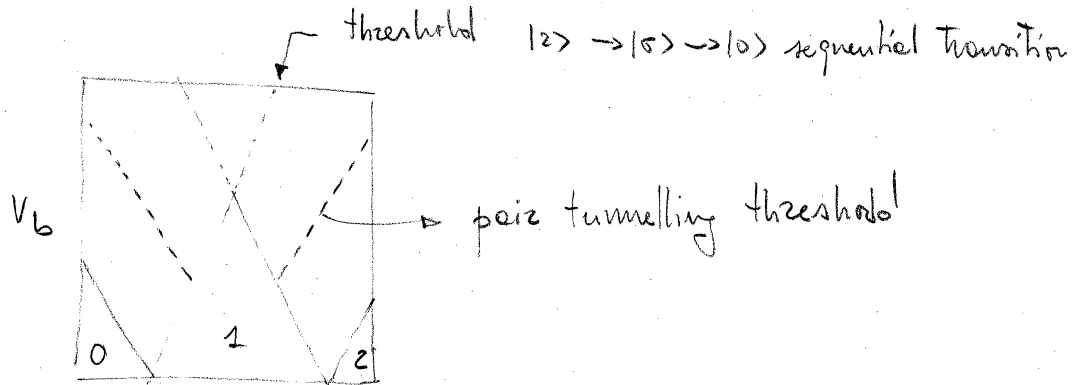 threshold |2> → |σ> → |0> sequential transition
V_b
pair tunnelling threshold
0 1 2